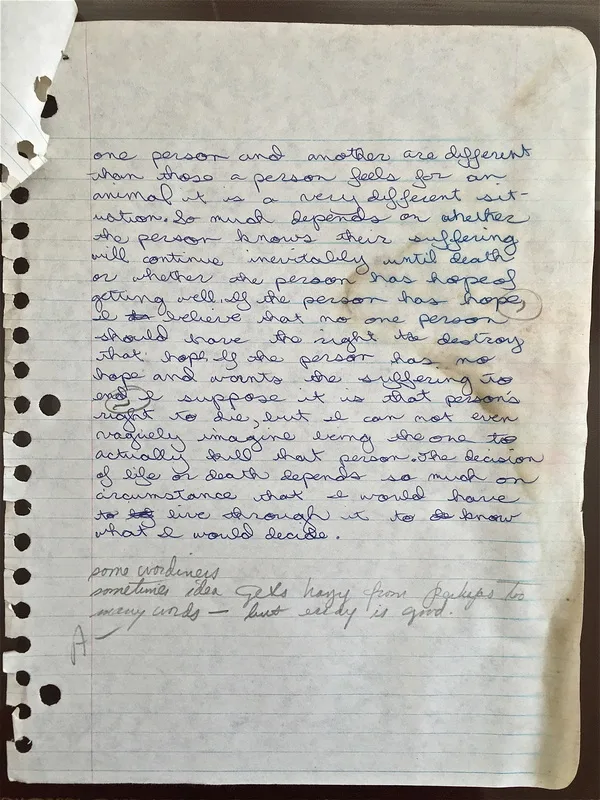 one person and another are different
than those a person feels for an
animal it is a very different sit-
uation. So much depends on whether
the person knows their suffering
will continue inevitably until death
or whether the person has hope of
getting well. If the person has hope,
I to believe that no one person
should have the right to destroy
that hope. If the person has no
hope and wants the suffering to
end, I suppose it is that person's
right to die, but I can not even
vaguely imagine being the one to
actually kill that person. The decision
of life or death depends so much on
circumstance that I would have
to live through it to know
what I would decide.
some wordiness
sometimes idea gets hazy from perhaps too
many words — but essay is good.
A-